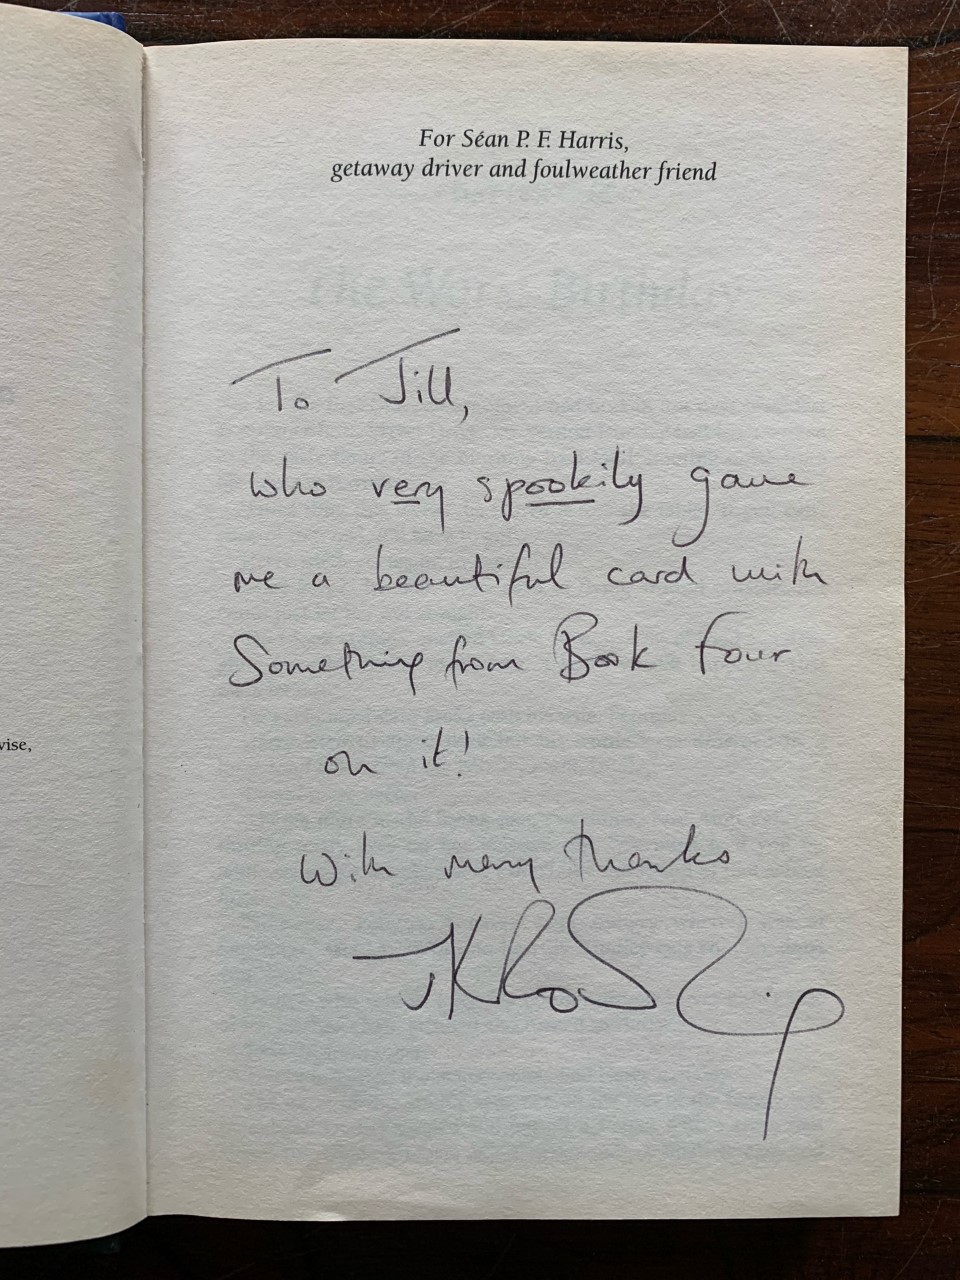 For Séan P. F. Harris,
getaway driver and foulweather friend
To Jill,
who very spookily gave
me a beautiful card with
Something from Book Four
on it!
With many thanks
JKRowling
vise,